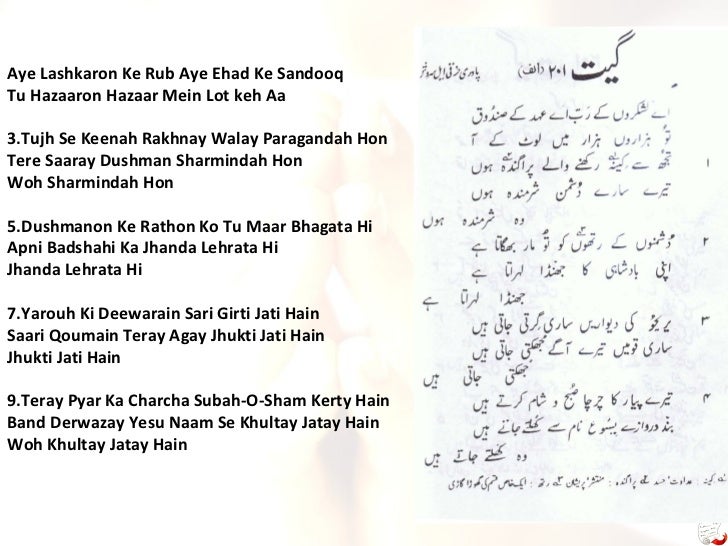 Aye Lashkaron Ke Rub Aye Ehad Ke Sandooq
Tu Hazaaron Hazaar Mein Lot keh Aa
3.Tujh Se Keenah Rakhnay Walay Paragandah Hon
Tere Saaray Dushman Sharmindah Hon
Woh Sharmindah Hon
5.Dushmanon Ke Rathon Ko Tu Maar Bhagata Hi
Apni Badshahi Ka Jhanda Lehrata Hi
Jhanda Lehrata Hi
7.Yarouh Ki Deewarain Sari Girti Jati Hain
Saari Qoumain Teray Agay Jhukti Jati Hain
Jhukti Jati Hain
9.Teray Pyar Ka Charcha Subah-O-Sham Kerty Hain
Band Derwazay Yesu Naam Se Khultay Jatay Hain
Woh Khultay Jatay Hain
گیت ۲۰۱ (الف) پادری
اے لشکروں کے رب اے عہد کے صندوق
تو ہزاروں ہزار میں لوٹ کے آ
۱ تجھ سے کینہ رکھنے والے پراگندہ ہوں
تیرے سارے دشمن شرمندہ ہوں
وہ شرمندہ ہوں
۲ دشمنوں کے رتھوں کو تو مار بھگاتا ہے
اپنی بادشاہی کا جھنڈا لہراتا ہے
جھنڈا لہراتا ہے
۳ یریحو کی دیواریں ساری گرتی جاتی ہیں
ساری قومیں تیرے آگے جھکتی جاتی ہیں
جھکتی جاتی ہیں
۴ تیرے پیار کا چرچا صبح و شام کرتے ہیں
بند دروازے یسوع نام سے کھلتے جاتے ہیں
وہ کھلتے جاتے ہیں
کینہ : عداوت، حسد پراگندہ : منتشر، پریشان رتھ : ایک خاص قسم کی گھوڑا گاڑی